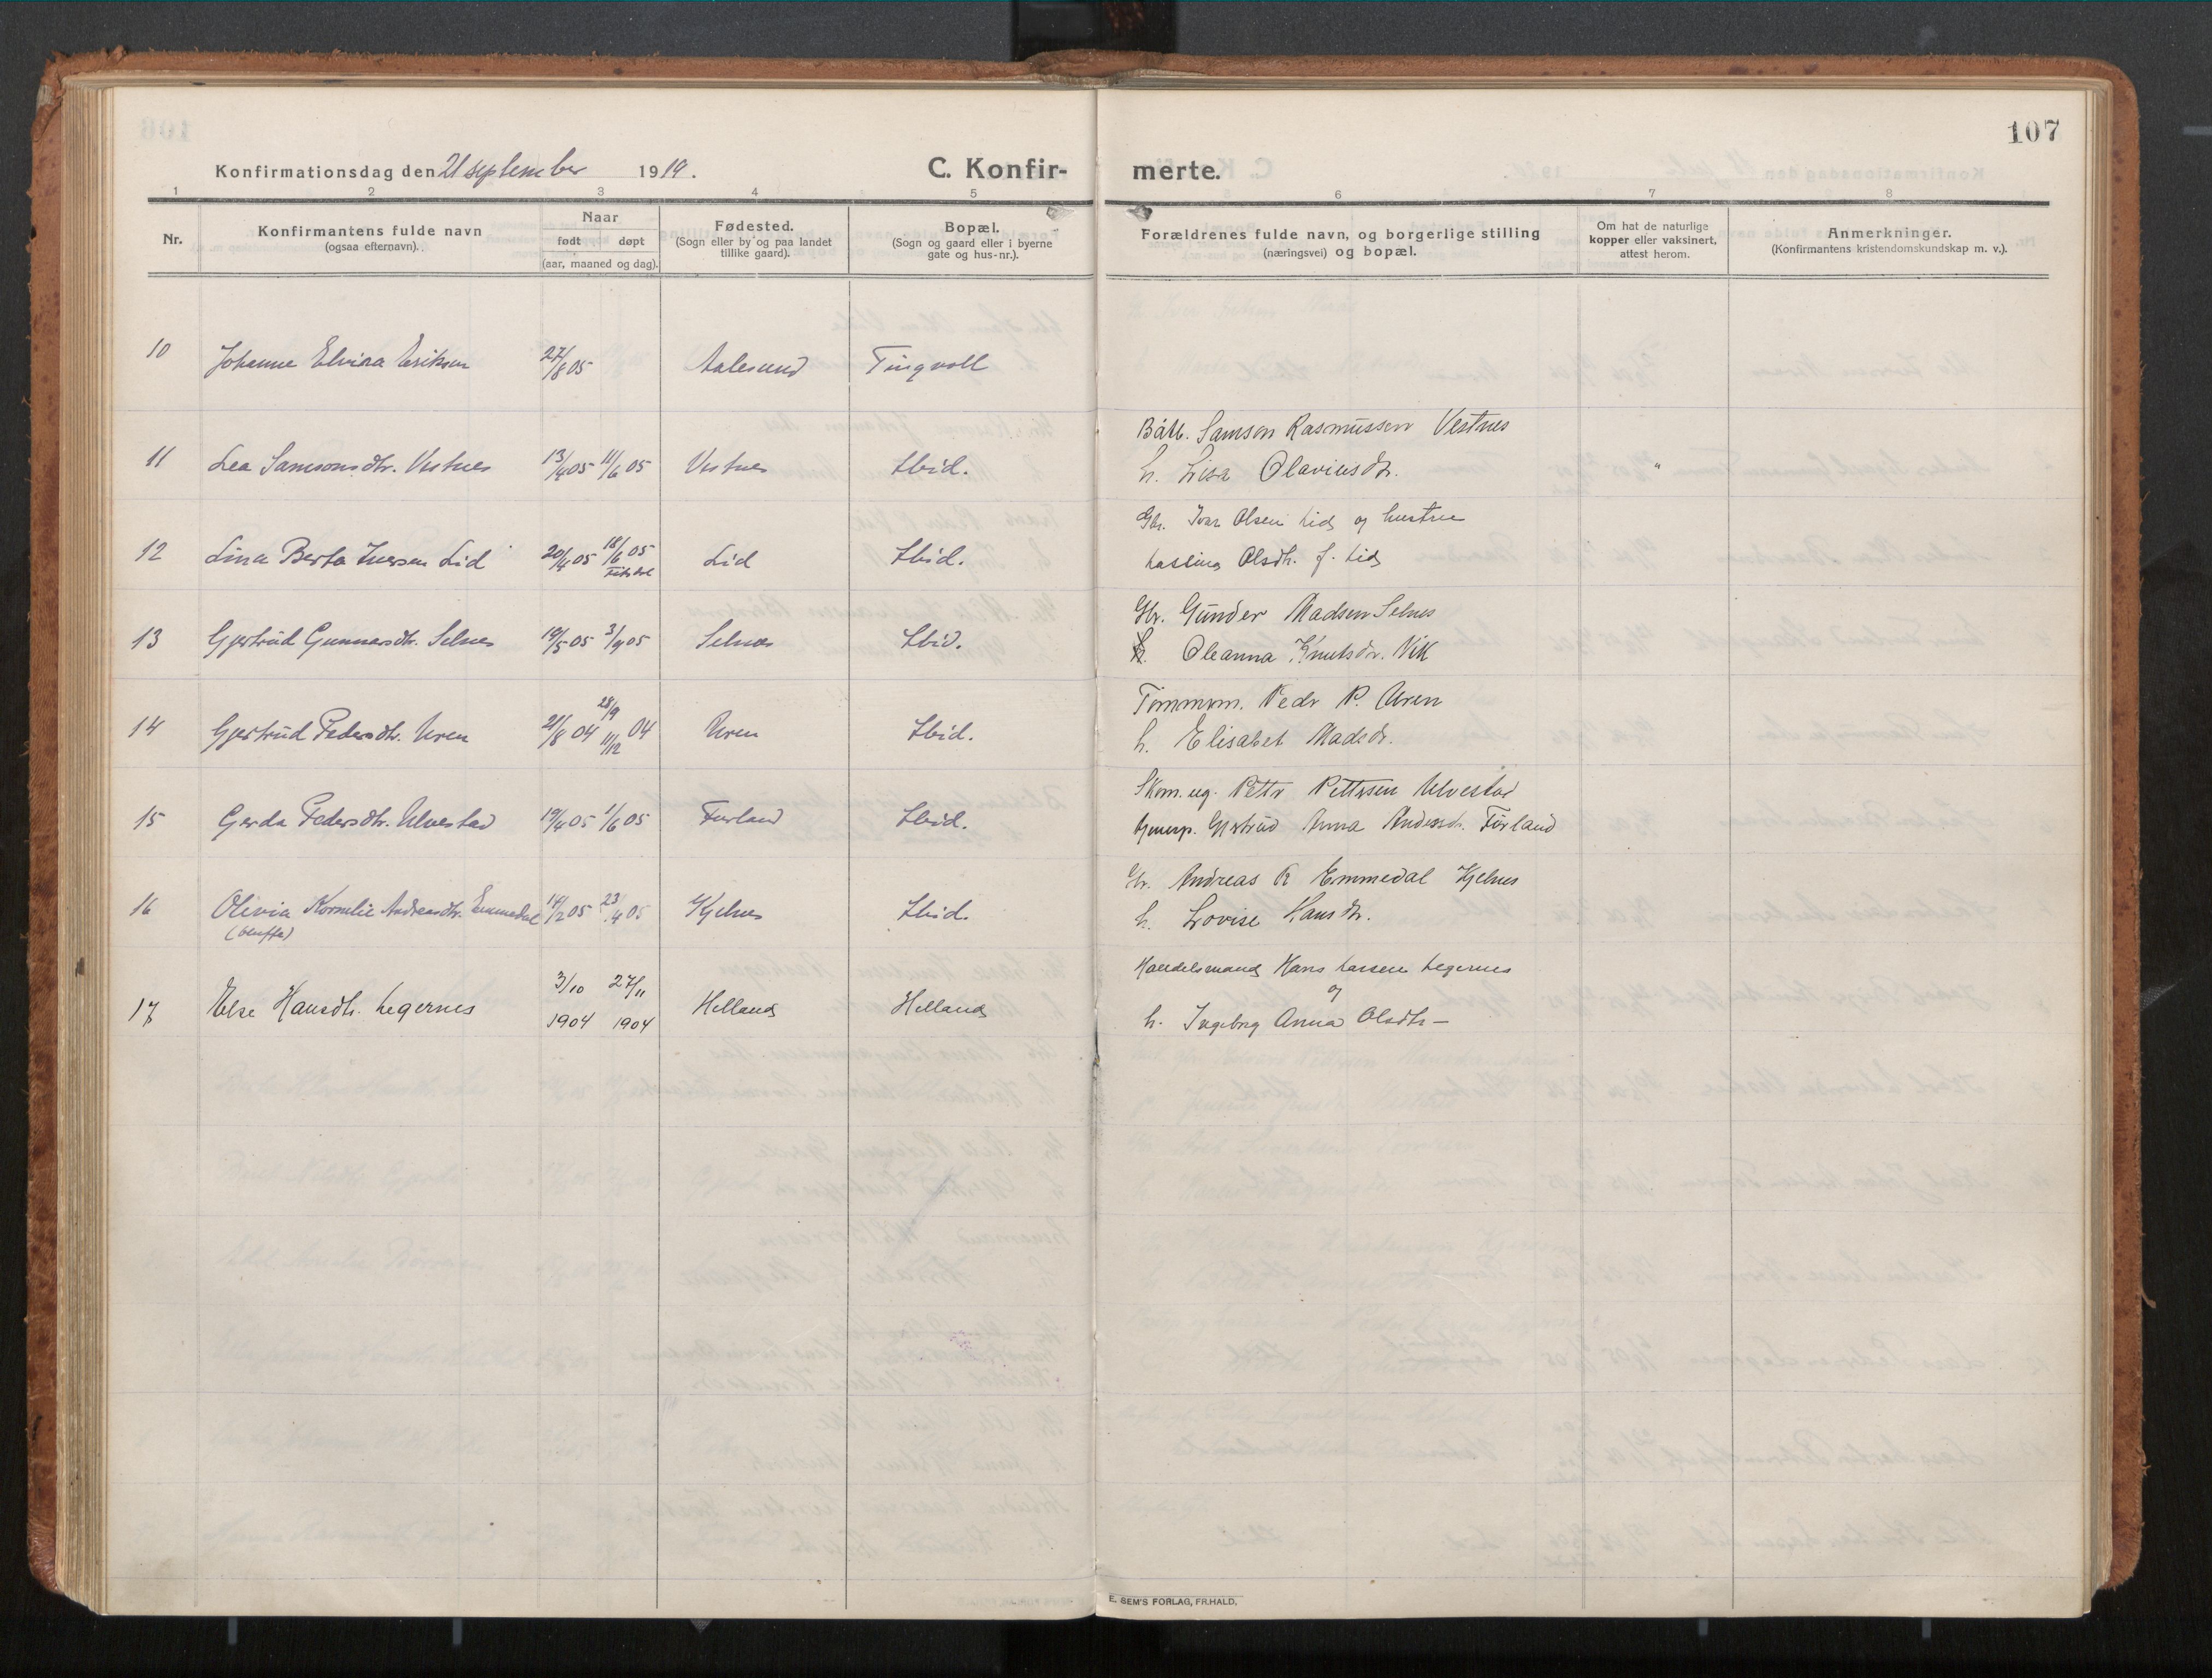 107
Konfirmationsdag den 21 september 1919.
C. Konfir- merte.
1 2 3 4 5 6 7 8
Nr.
Konfirmantens fulde navn
(ogsaa efternavn).
Naar
født døpt
(aar, maaned og dag).
Fødested.
(Sogn eller by og paa landet
tillike gaard).
Bopæl.
(Sogn og gaard eller i byerne
gate og hus-nr.).
Forældrenes fulde navn, og borgerlige stilling
(næringsvei) og bopæl.
Om hat de naturlige
kopper eller vaksinert,
attest herom.
Anmerkninger.
(Konfirmantens kristendomskundskap m. v.).
10 Johanne Elvira Eriksen 27/8 05 Aalesund Tingvoll
Båtb. Samson Rasmussen Vestnes
11 Lea Samsonsdtr. Vestnes 13/4 05 11/6 05 Vestnes Ibid.
h. Lisa Olaviusdr. "
Gbr. Ivar Olsen Lid og hustru
12 Lina Berta Iversen Lid 20/4 05 18/6 05 Lid Ibid.
Olsdtr. f. Lid
Gbr. Gunder Madsen Selnes
13 Gjertrud Gunnarsdtr. Selnes 19/5 05 3/9 05 Selnes Ibid.
h. Oleanna Knutsdr. Vik
Tømmrm. Pedr P. Uren
14 Gjertrud Pedersdtr. Uren 21/8 04 28/9 11/12 04 Uren Ibid.
h. Elisabet Madsdr.
Skom. ug. Pettr Pettrsen Ulvestad
15 Gerda Pedersdtr. Ulvestad 19/4 05 1/6 05 Furland Ibid.
Gjertrud Anna Andersdr. Furland
Gbr. Andreas R Emmedal Kjelnes
16 Olivia Kornelie Andreasdtr. Emmedal 14/2 05 23/4 05 Kjelnes Ibid.
h. Lovise Hansdtr.
Handelsmand Hans Larsen Legernes
og
17 Else Hansdtr. Legernes 3/10 1904 27/11 1904 Helland Helland
h. Ingebrg Anna Olsdtr-
E. SEM'S FORLAG, FR.HALD.